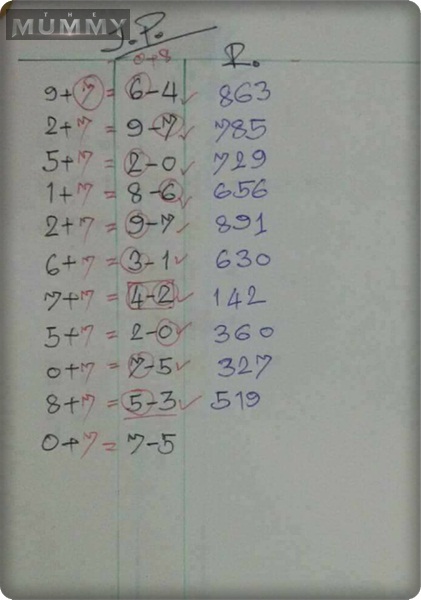 THE
MUMMY
J.P.
0+8 R.
9+7 = 6-4 ✓ 863
2+7 = 9-7 ✓ 785
5+7 = 2-0 ✓ 729
1+7 = 8-6 ✓ 656
2+7 = 9-7 ✓ 891
6+7 = 3-1 ✓ 630
7+7 = 4-2 ✓ 142
5+7 = 2-0 ✓ 360
0+7 = 7-5 ✓ 327
8+7 = 5-3 ✓ 519
0+7 = 7-5